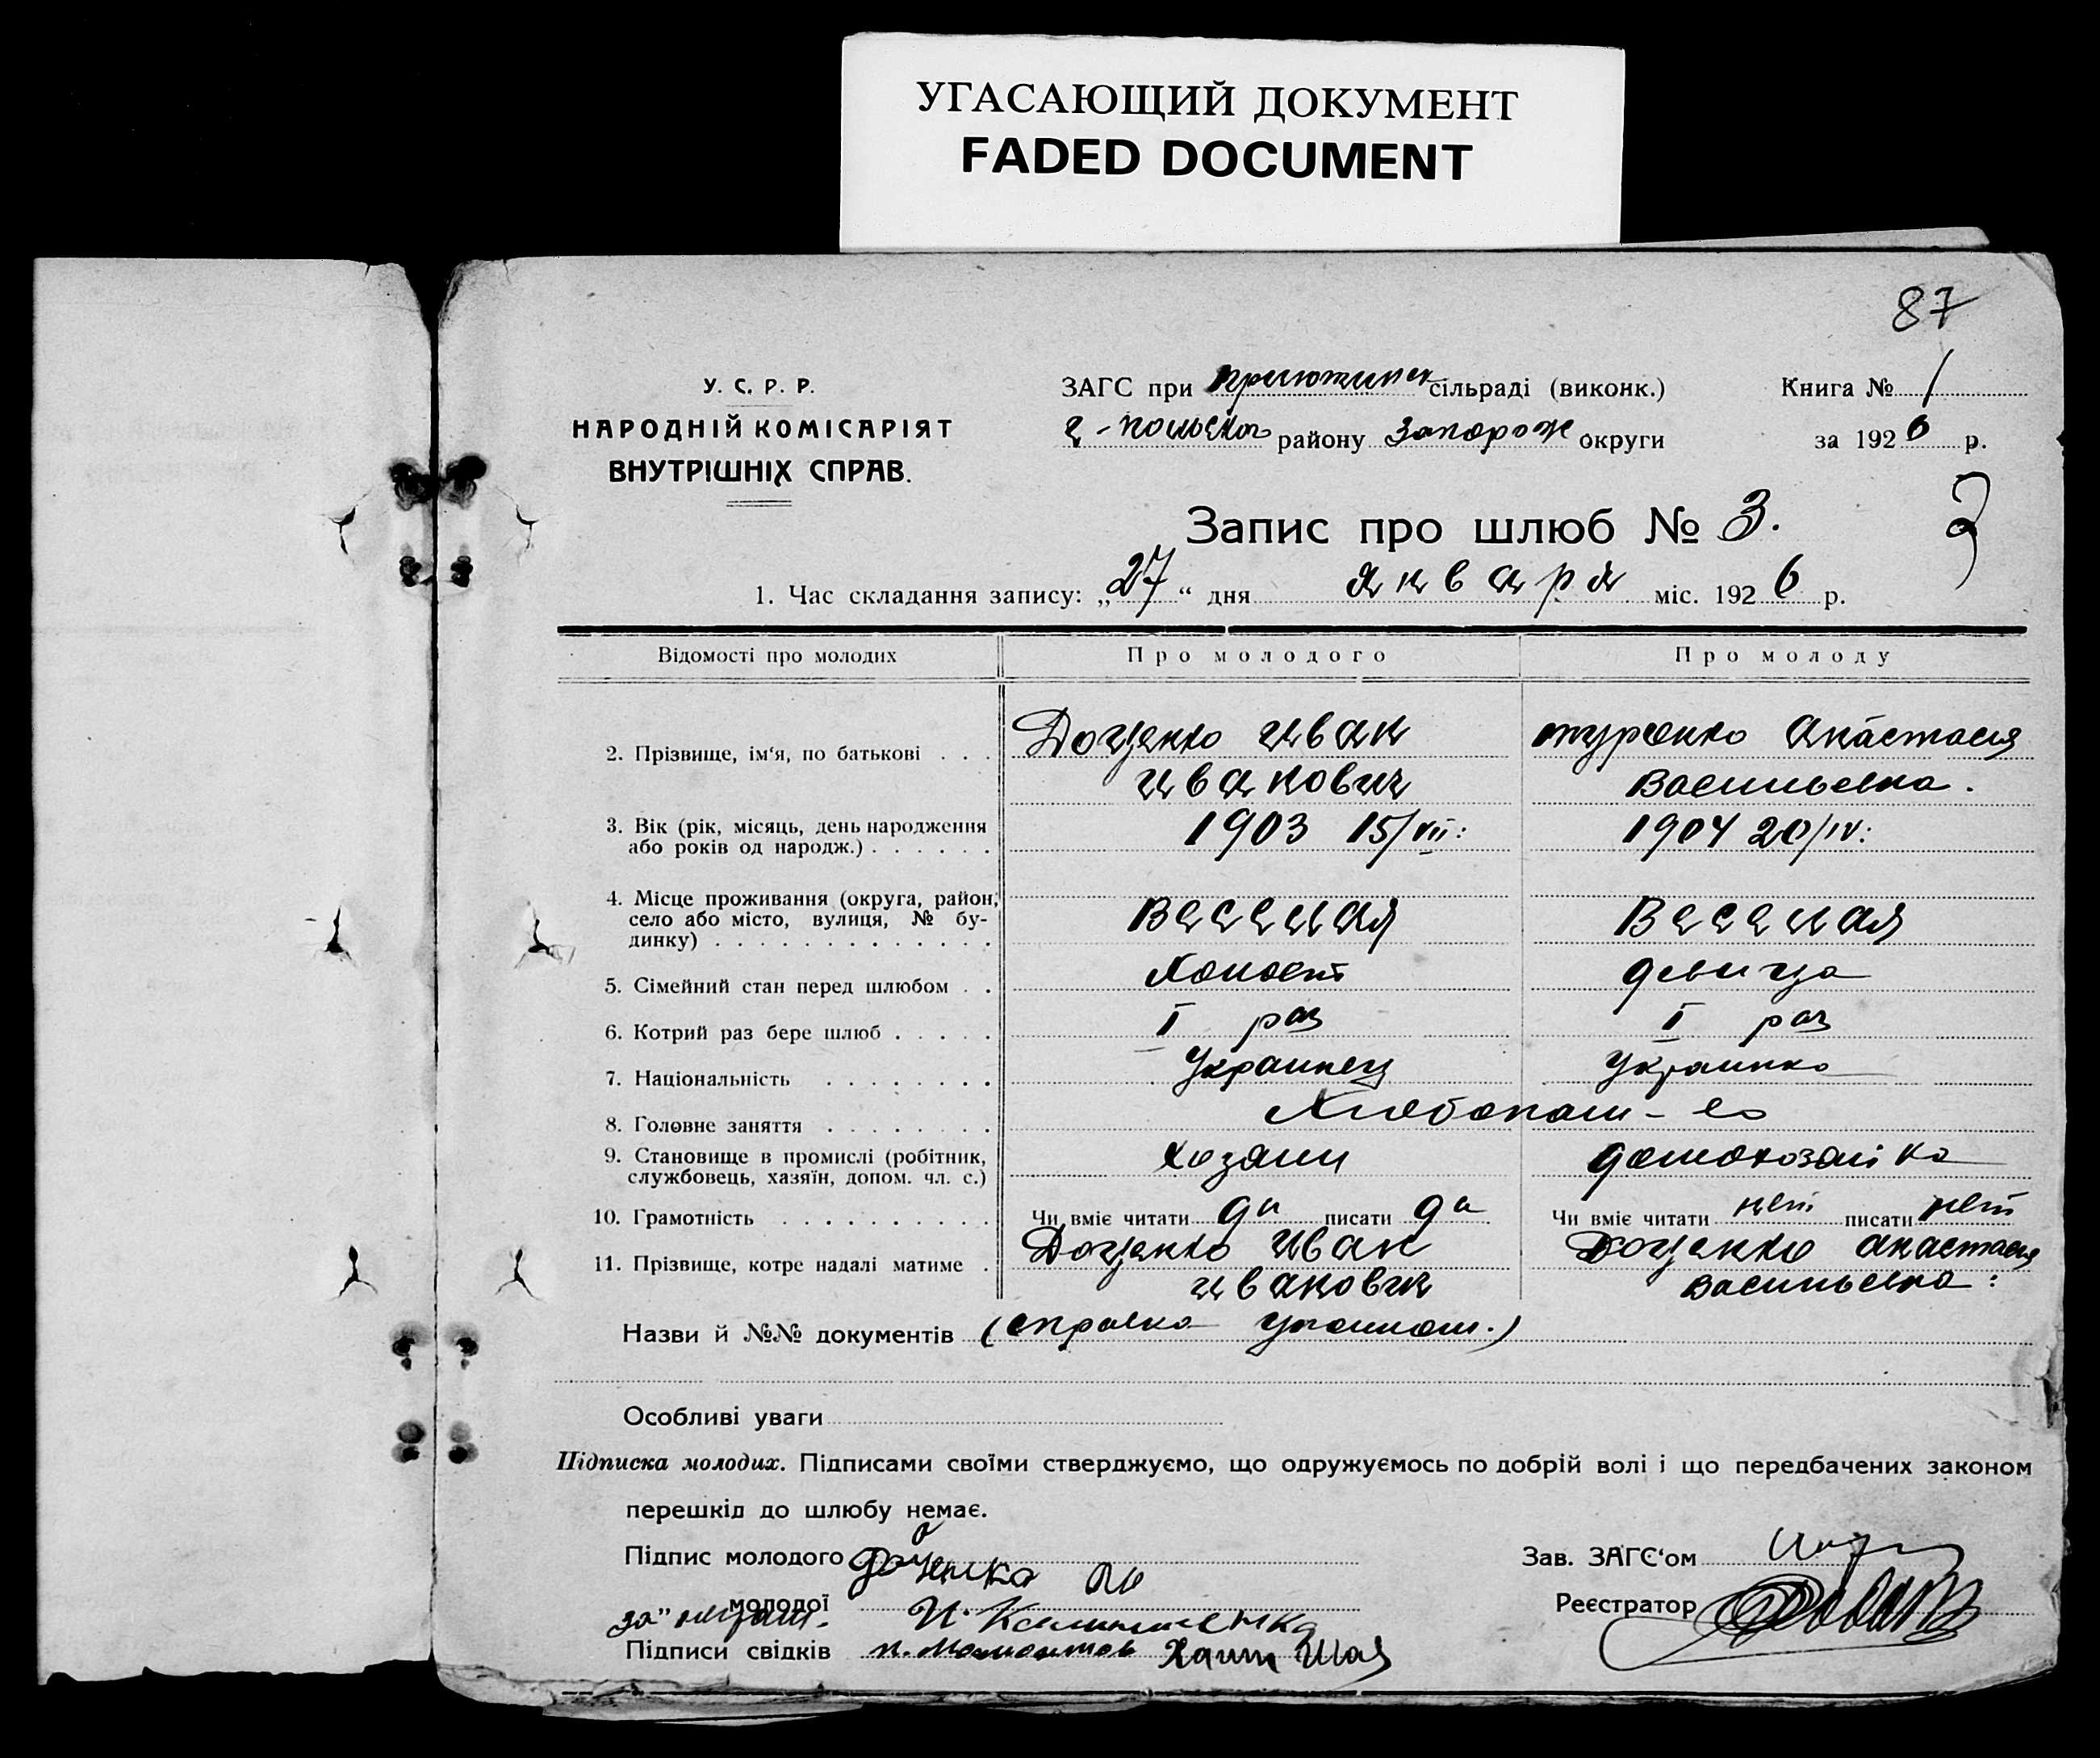 УГАСАЮЩИЙ ДОКУМЕНТ
FADED DOCUMENT
87
У. С. Р. Р.
НАРОДНІЙ КОМІСАРІЯТ
ВНУТРІШНІХ СПРАВ.
ЗАГС при сільраді (виконк.)
району Запорож округи
Книга № 1
за 1926 р.
Запис про шлюб № 3.
1. Час складання запису: „27“ дня Января міс. 1926 р.
Відомості про молодих Про молодого Про молоду
2. Прізвище, ім‘я, по батькові . . . Доценко Иван Туренко Анастасия
Иванович Васильевна.
3. Вік (рік, місяць, день народження 1903 15/VII: 1904 20/IV:
або років од народж.) . . . . . .
4. Місце проживання (округа, район,
село або місто, вулиця, № бу- Веселая Веселая
динку) . . . . . . . . . . . . .
5. Сімейний стан перед шлюбом . . Холост девица
6. Котрий раз бере шлюб . . . . . I раз I раз
7. Національність . . . . . . . . Украинец Украинка
8. Головне заняття . . . . . . . . Хлебопаш-во
9. Становище в промислі (робітник, хозяин домохозяйка
службовець, хазяїн, допом. чл. с.)
10. Грамотність . . . . . . . . . . Чи вміє читати да писати да Чи вміє читати нет писати нет
11. Прізвище, котре надалі матиме . Доценко Иван Доценко Анастасия
Иванович Васильевна:
Назви й №№ документів (справка )
Особливі уваги
Підписка молодих. Підписами своїми стверджуємо, що одружуємось по добрій волі і що передбачених законом
перешкід до шлюбу немає.
Підпис молодого Доценко Зав. ЗАГС‘ом
за „ молодої неграм. Реєстратор
Підписи свідків п. Мамонтов